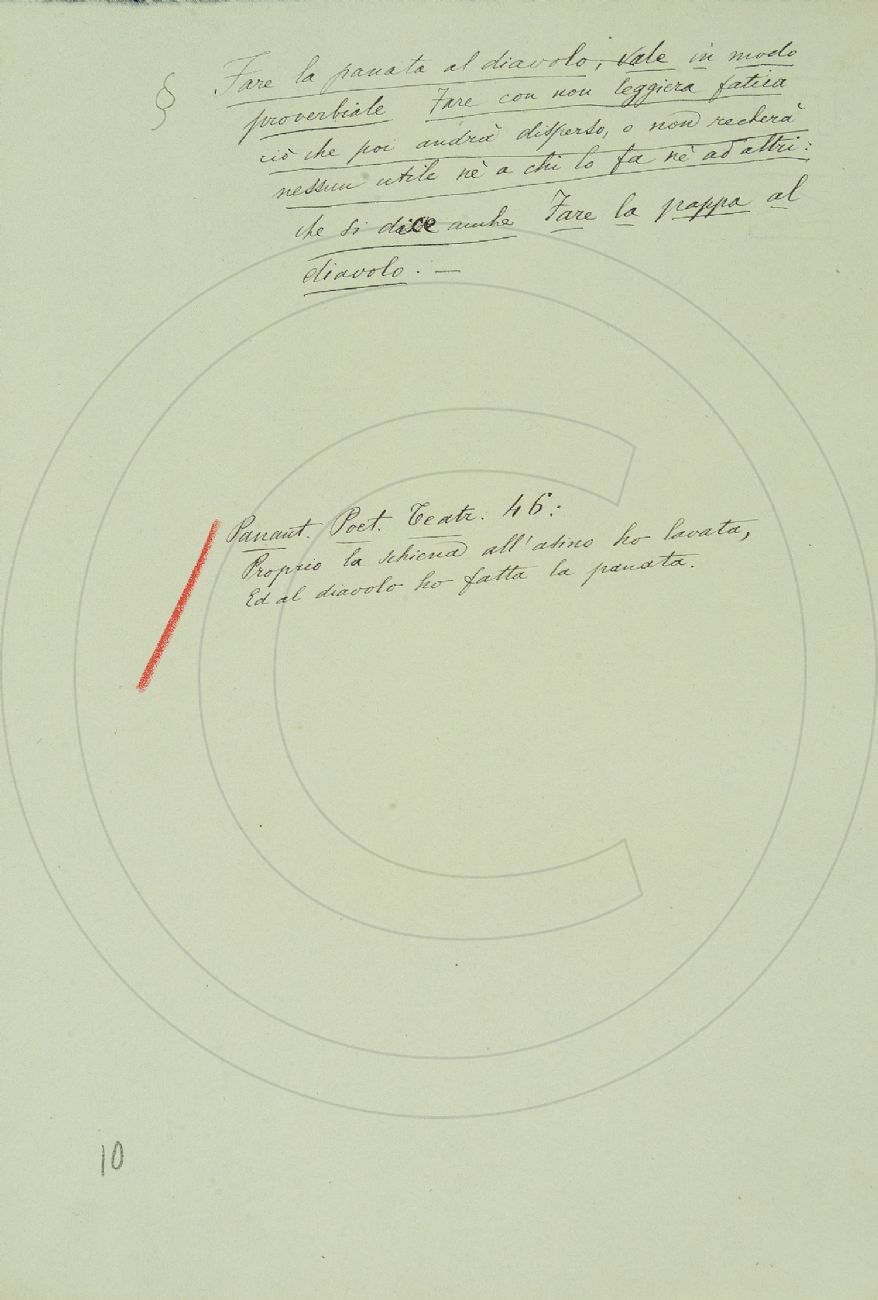 § Fare la panata al diavolo, vale in modo
proverbiale Fare con non leggiera fatica
ciò che poi andrà disperso, o non recherà
nessun utile nè a chi lo fa nè ad altri:
che si dice anche Fare la pappa al
diavolo. —
Panant. Poet. Teatr. 46:
Proprio la schiena all'asino ho lavata,
Ed al diavolo ho fatta la panata.
10